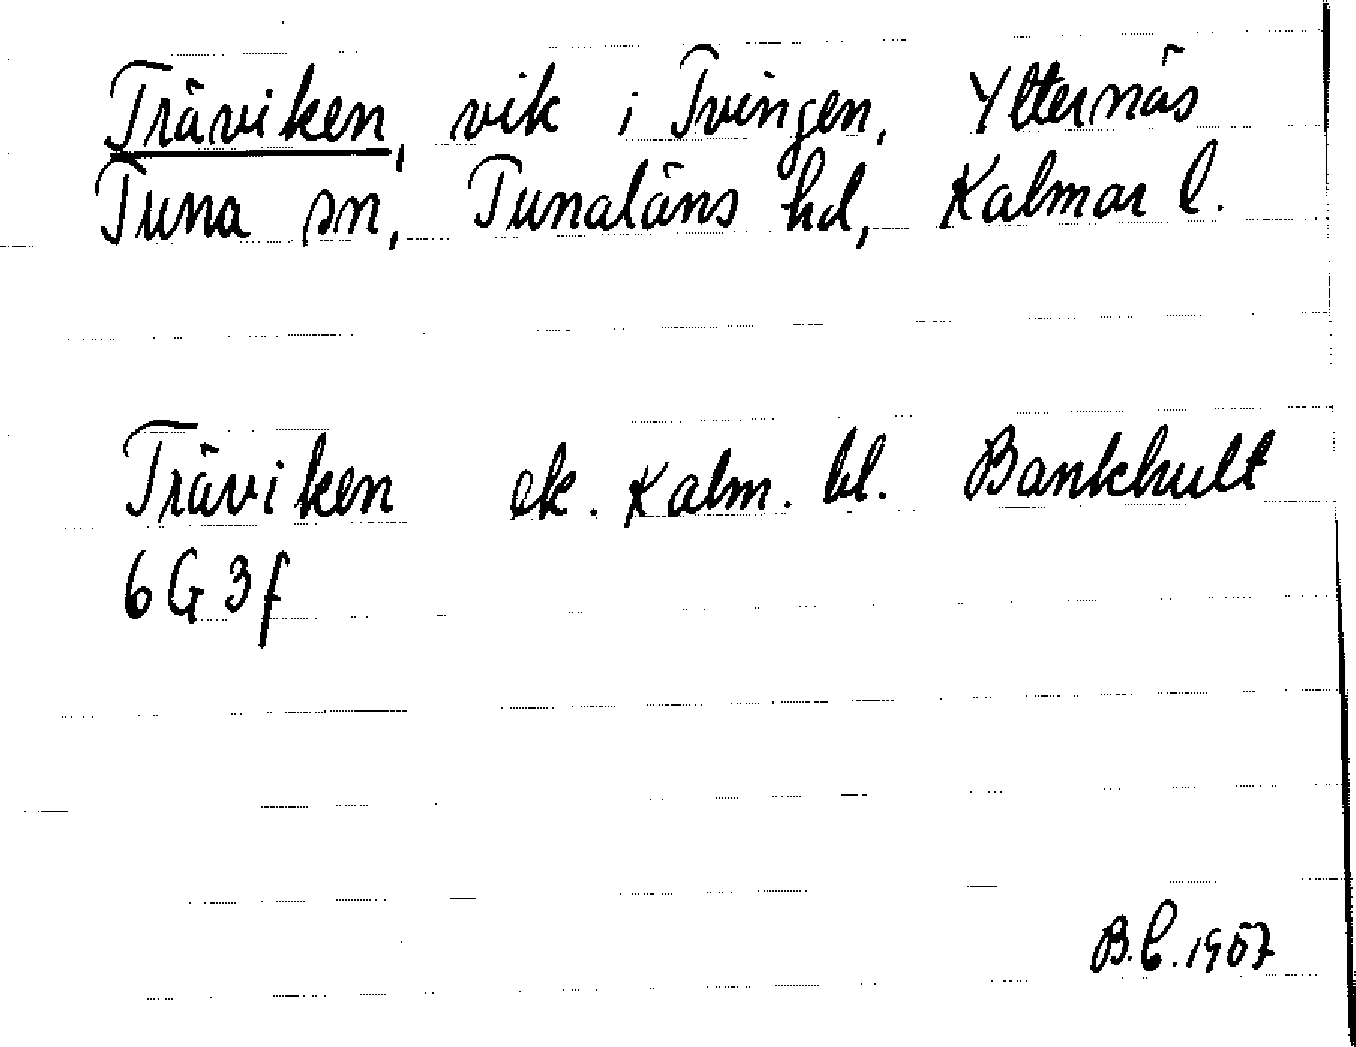 Träviken, vik i Tvingen, Ytternäs
Tuna sn, Tunaläns hd, Kalmar l.
Träviken ek. Kalm. bl. Bankhult
6G3f
B.E. 1957